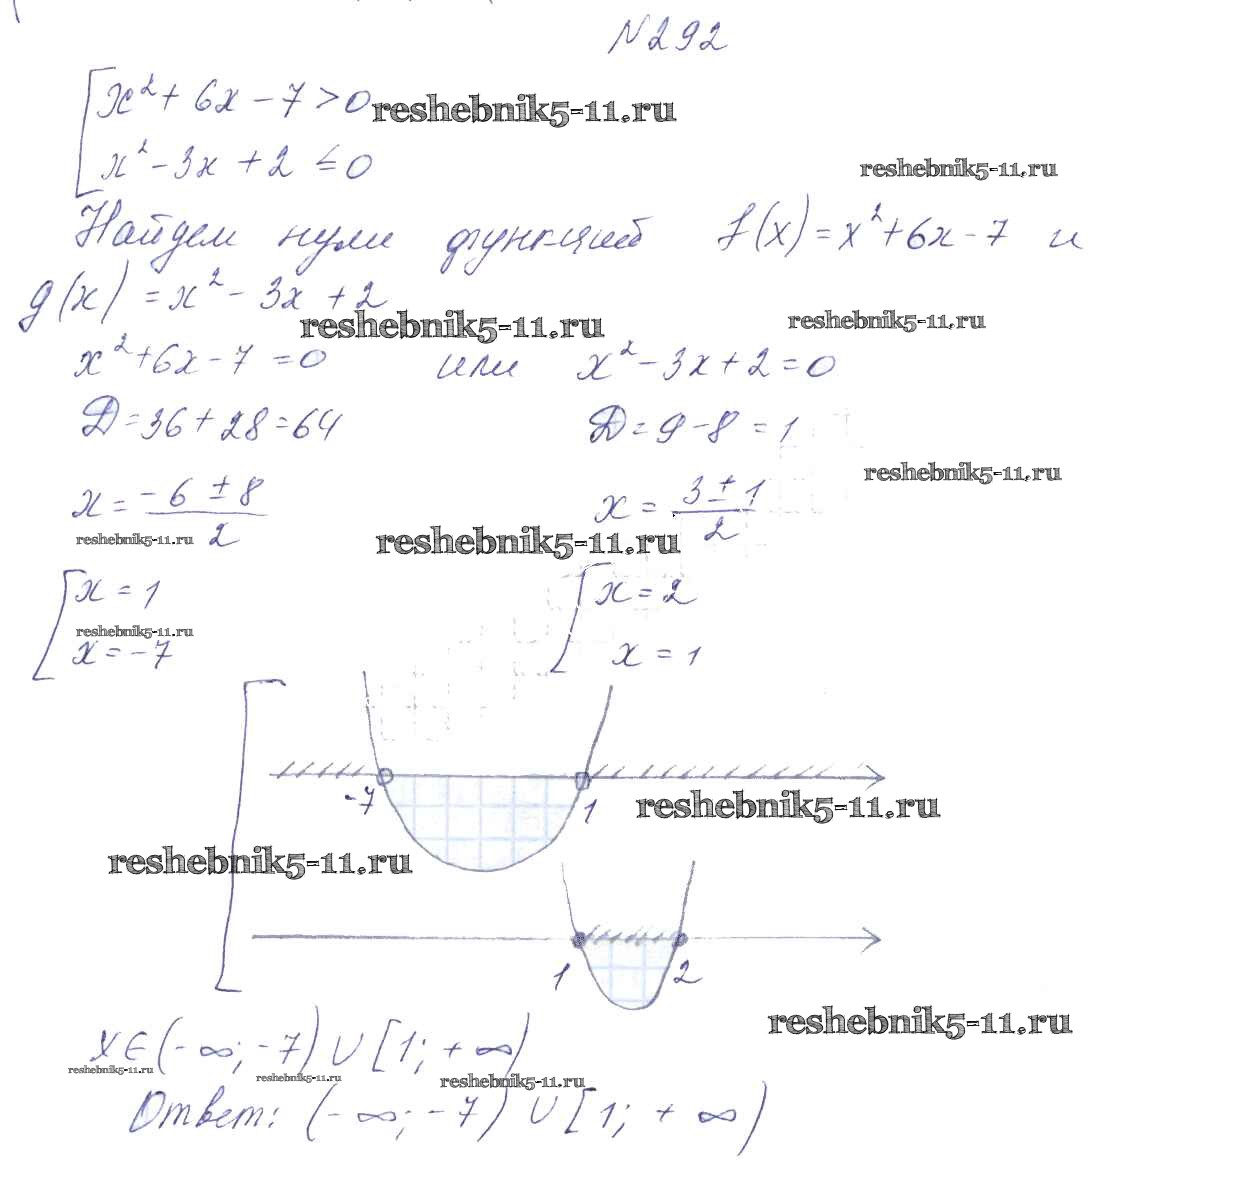 N292
x² + 6x - 7 > 0 reshebnik5-11.ru
x² - 3x + 2 ≤ 0 reshebnik5-11.ru
Найдем нули функций f(x) = x² + 6x - 7 и
g(x) = x² - 3x + 2
reshebnik5-11.ru reshebnik5-11.ru
x² + 6x - 7 = 0 или x² - 3x + 2 = 0
Д = 36 + 28 = 64 Д = 9 - 8 = 1
reshebnik5-11.ru
x = (-6 ± 8)/2 x = (3 ± 1)/2
reshebnik5-11.ru reshebnik5-11.ru
x = 1 x = 2
reshebnik5-11.ru
x = -7 x = 1
-7 1 reshebnik5-11.ru
reshebnik5-11.ru
1 2
reshebnik5-11.ru
x ∈ (-∞; -7) ∪ [1; +∞)
reshebnik5-11.ru reshebnik5-11.ru reshebnik5-11.ru
Ответ: (-∞; -7) ∪ [1; +∞)